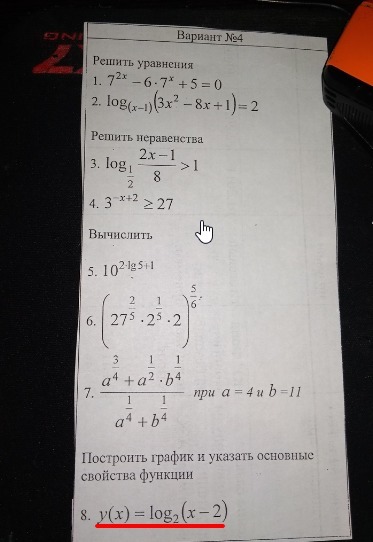 Вариант №4
Решить уравнения
1. 7^{2x} − 6·7^{x} + 5 = 0
2. log_{(x−1)}(3x² − 8x + 1) = 2
Решить неравенства
3. log_{1/2} (2x−1)/8 > 1
4. 3^{−x+2} ≥ 27
Вычислить
5. 10^{2·lg5+1}
6. (27^{2/5} · 2^{1/5} · 2)^{5/6}
7. (a^{3/4} + a^{1/2} · b^{1/4})/(a^{1/4} + b^{1/4}) при a = 4 и b = 11
Построить график и указать основные
свойства функции
8. y(x) = log₂(x − 2)